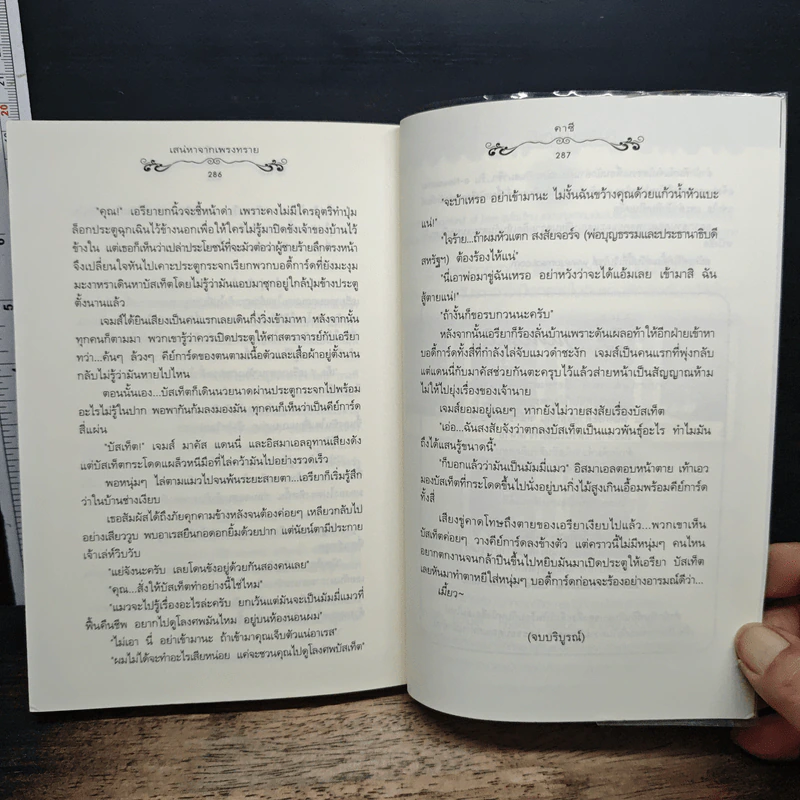 เสน่หาจากเพรงทราย
286
"คุณ!" เอรียายกนิ้วจะชี้หน้าด่า เพราะคงไม่มีใครอุตริทำปุ่ม
ล็อกประตูฉุกเฉินไว้ข้างนอกเพื่อให้ใครไม่รู้มาปิดขังเจ้าของบ้านไว้
ข้างใน แต่เธอก็เห็นว่าเปล่าประโยชน์ที่จะมัวต่อว่าผู้ชายร้ายลึกตรงหน้า
จึงเปลี่ยนใจหันไปเคาะประตูกระจกเรียกพวกบอดี้การ์ดที่ยังมะงุม
มะงาหราเดินหาบัสเท็ตโดยไม่รู้ว่ามันแอบมาซุกอยู่ใกล้ปุ่มข้างประตู
ตั้งนานแล้ว
เจมส์ได้ยินเสียงเป็นคนแรกเลยเดินกึ่งวิ่งเข้ามาหา หลังจากนั้น
ทุกคนก็ตามมา พวกเขารู้ว่าควรเปิดประตูให้ศาสตราจารย์กับเอรียา
ทว่า...ค้นๆ ล้วงๆ คีย์การ์ดของตนตามเนื้อตัวและเสื้อผ้าอยู่ตั้งนาน
กลับไม่รู้ว่ามันหายไปไหน
ตอนนั้นเอง...บัสเท็ตก็เดินนวยนาดผ่านประตูกระจกไปพร้อม
อะไรไม่รู้ในปาก พอพากันก้มลงมองมัน ทุกคนก็เห็นว่าเป็นคีย์การ์ด
สี่แผ่น
"บัสเท็ต!" เจมส์ มาคัส แดนนี่ และอิสมาเอลอุทานเสียงดัง
แต่บัสเท็ตกระโดดแผล็วหนีมือที่ไล่คว้ามันไปอย่างรวดเร็ว
พอหนุ่มๆ ไล่ตามแมวไปจนพ้นระยะสายตา...เอรียาก็เริ่มรู้สึก
ว่าในบ้านช่างเงียบ
เธอสัมผัสได้ถึงภัยคุกคามข้างหลังจนต้องค่อยๆ เหลียวกลับไป
อย่างเสียววูบ พบอาเรสยืนกอดอกยิ้มด้วยปาก แต่นัยน์ตามีประกาย
เจ้าเล่ห์วิบวับ
"แย่จังนะครับ เลยโดนขังอยู่ด้วยกันสองคนเลย"
"คุณ...สั่งให้บัสเท็ตทำอย่างนี้ใช่ไหม"
"แมวจะไปรู้เรื่องอะไรล่ะครับ ยกเว้นแต่มันจะเป็นมัมมี่แมวที่
ฟื้นคืนชีพ อยากไปดูโลงศพมันไหม อยู่บนห้องนอนผม"
"ไม่เอา นี่ อย่าเข้ามานะ ถ้าเข้ามาคุณเจ็บตัวแน่อาเรส"
"ผมไม่ได้จะทำอะไรเสียหน่อย แค่จะชวนคุณไปดูโลงศพบัสเท็ต"
คาซี
287
"จะบ้าเหรอ อย่าเข้ามานะ ไม่งั้นฉันขว้างคุณด้วยแก้วน้ำหัวแบะ
แน่!"
"ใจร้าย...ถ้าผมหัวแตก สงสัยจอร์จ (พ่อบุญธรรมและประธานาธิบดี
สหรัฐฯ) ต้องร้องไห้แน่"
"นี่เอาพ่อมาขู่ฉันเหรอ อย่าหวังว่าจะได้แอ้มเลย เข้ามาสิ ฉัน
สู้ตายแน่!"
"ถ้างั้นก็ขอรบกวนนะครับ"
หลังจากนั้นเอรียาก็ร้องลั่นบ้านเพราะดันเผลอท้าให้อีกฝ่ายเข้าหา
บอดี้การ์ดทั้งสี่ที่กำลังไล่จับแมวดำชะงัก เจมส์เป็นคนแรกที่พุ่งกลับ
แต่แดนนี่กับมาคัสช่วยกันตะครุบไว้แล้วส่ายหน้าเป็นสัญญาณห้าม
ไม่ให้ไปยุ่งเรื่องของเจ้านาย
เจมส์ยอมอยู่เฉยๆ หากยังไม่วายสงสัยเรื่องบัสเท็ต
"เอ่อ...ฉันสงสัยจังว่าตกลงบัสเท็ตเป็นแมวพันธุ์อะไร ทำไมมัน
ถึงได้แสนรู้ขนาดนี้"
"ก็บอกแล้วว่ามันเป็นมัมมี่แมว" อิสมาเอลตอบหน้าตาย เท้าเอว
มองบัสเท็ตที่กระโดดขึ้นไปนั่งอยู่บนกิ่งไม้สูงเกินเอื้อมพร้อมคีย์การ์ด
ทั้งสี่
เสียงขู่คาดโทษถึงตายของเอรียาเงียบไปแล้ว...พวกเขาเห็น
บัสเท็ตค่อยๆ วางคีย์การ์ดลงข้างตัว แต่คราวนี้ไม่มีหนุ่มๆ คนไหน
อยากตกงานจนกล้าปีนขึ้นไปหยิบมันมาเปิดประตูให้เอรียา บัสเท็ต
เลยหันมาทำตาหยีใส่หนุ่มๆ บอดี้การ์ดก่อนจะร้องอย่างอารมณ์ดีว่า...
เมี้ยว~
(จบบริบูรณ์)